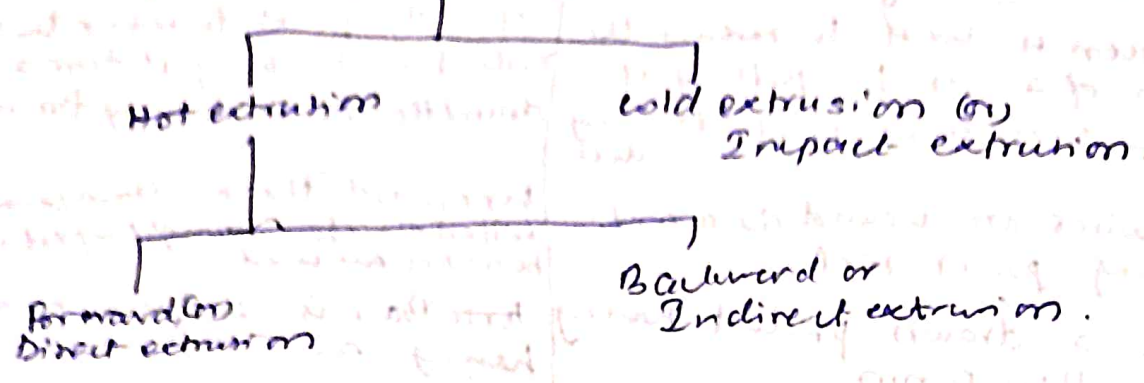 Hot extrusion
cold extrusion (or)
Impact extrusion
Forward (or)
Direct extrusion
Backward or
Indirect extrusion.